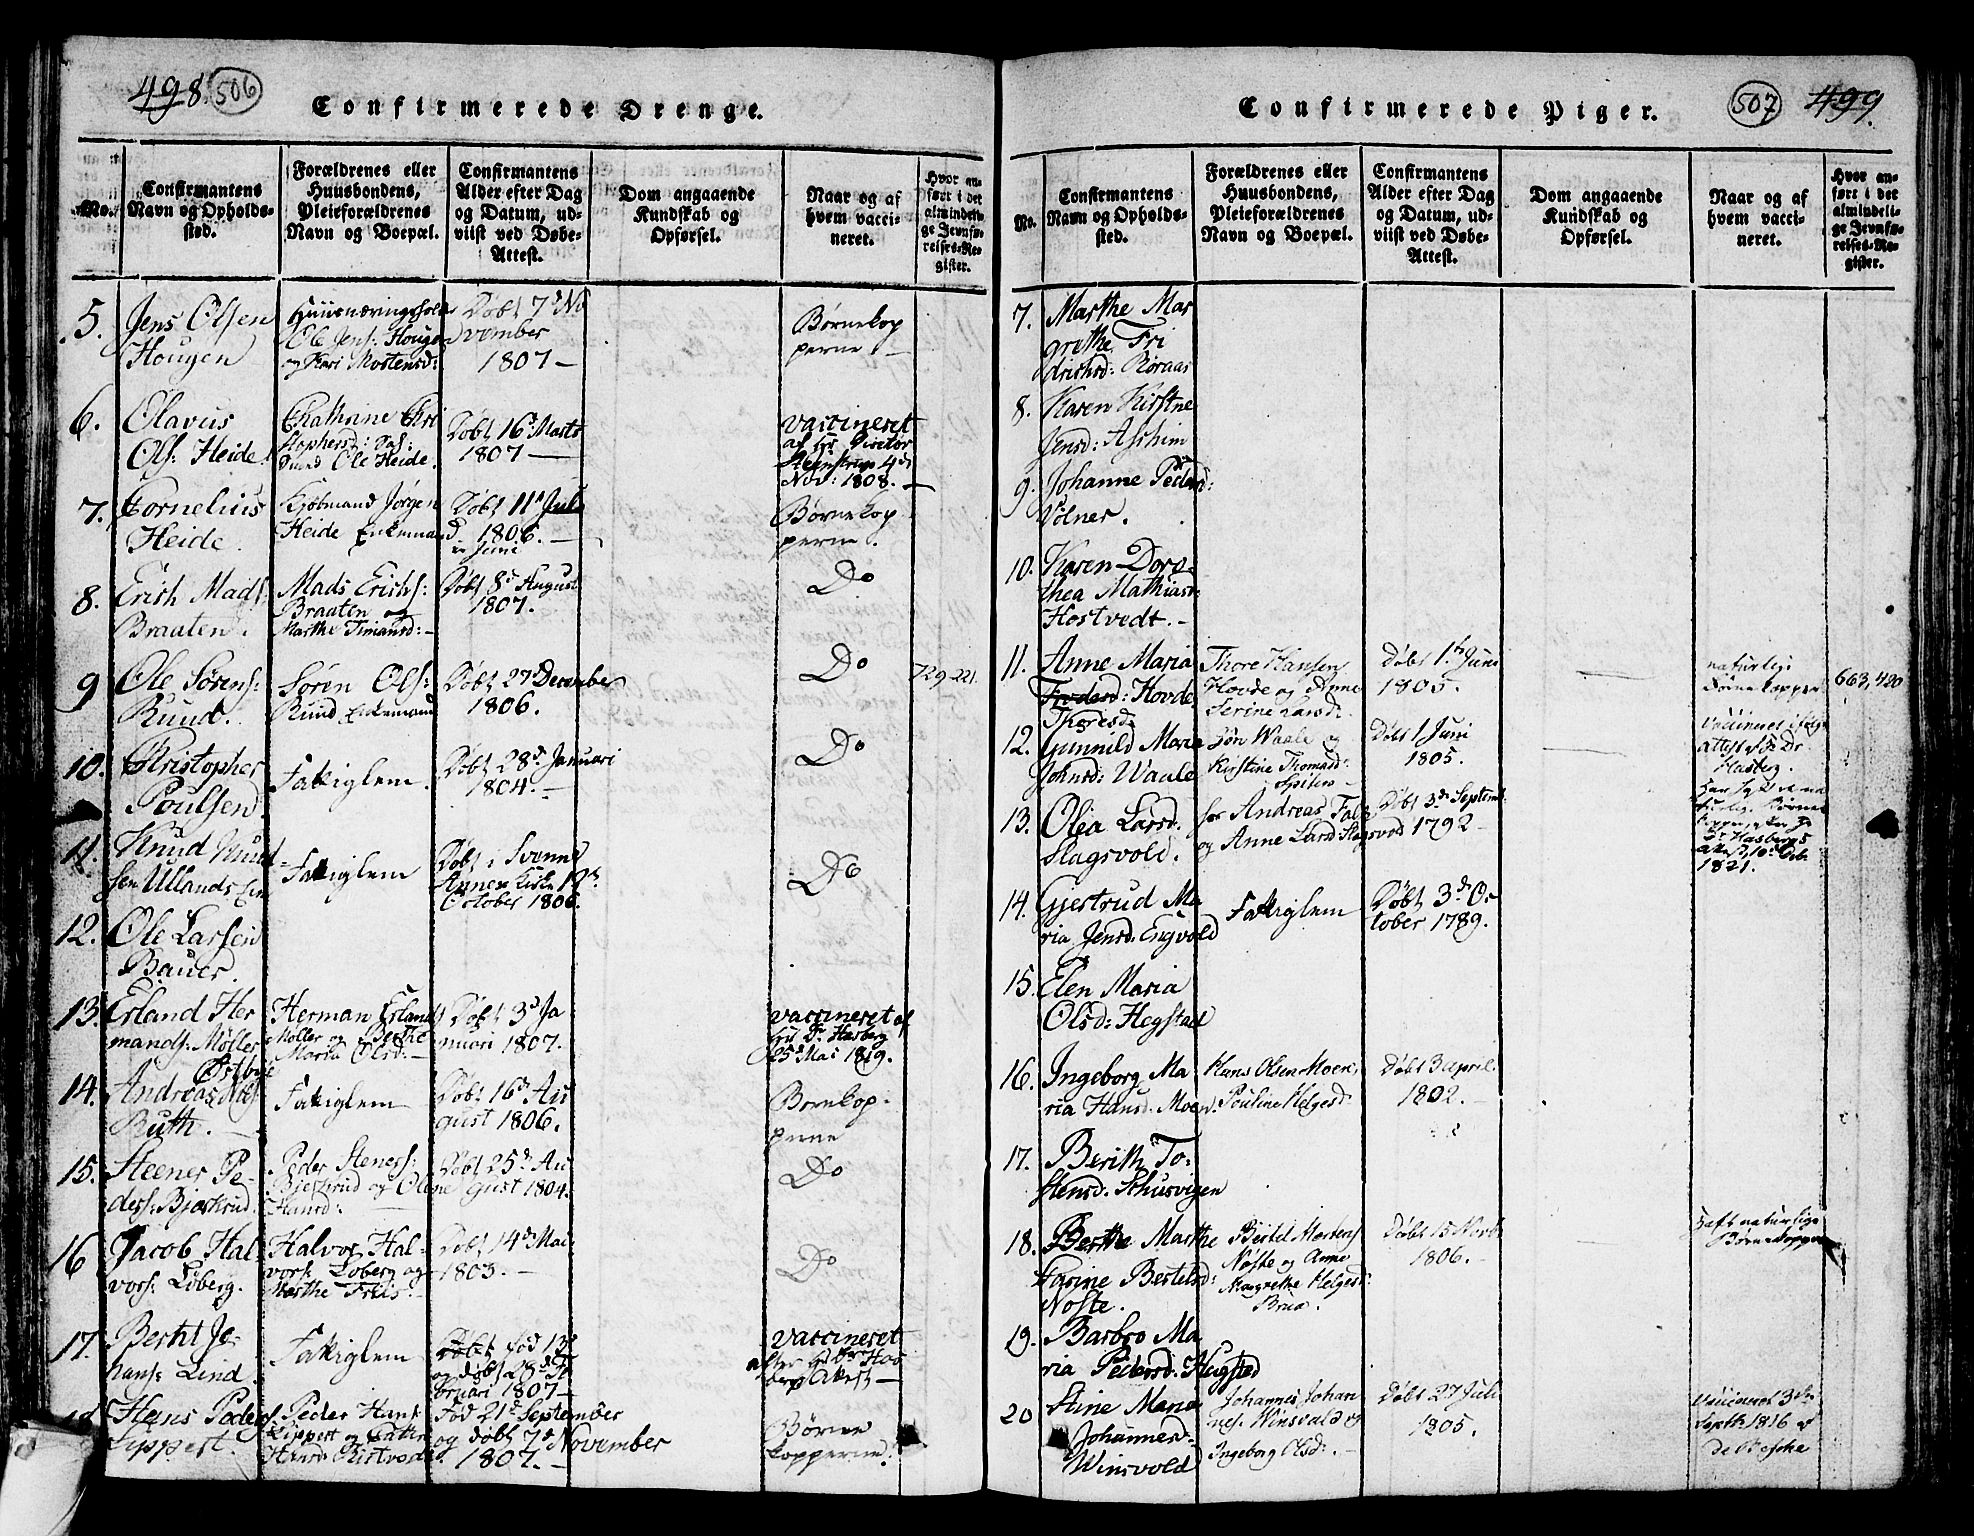 498. 506
Confirmerede Drenge.
No.
Confirmantens
Navn og Opholds-
sted.
Forældrenes eller
Huusbondens,
Pleieforældrenes
Navn og Boepæl.
Confirmantens
Alder efter Dag
og Datum, ud-
viist ved Døbe-
Attest.
Dom angaaende
Kundskab og
Opførsel.
Naar og af
hvem vacci-
neret.
Hvor an-
ført i det
almindeli-
ge Jevnfø-
relses-Re-
gister.
5. Jens Olsen
Hougen
Ole Jens: Hougen
og Kari Mortensd:
Døbt 7d No
vember
1807 —
Børnekop
perne —
6. Olavus
Ols: Heide.
Chathrine Chri
stophersd:
Ole Heide.
Døbt 16d Marts
1807 —
vaccineret
af hr Director
Steenstrup 4de
Nov: 1808. —
7. Cornelius
Heide.
Kjøbmand Jørgen
Heide Enkemand
Døbt 11d Juli
1806. —
Juni
Børnekop
perne.
8. Erich Mads:
Braaten.
Mads Erichs:
Braaten og
Marthe Timansd: —
Døbt 8d August
1807. —
Do
9 Ole Sørens:
Ruud.
Søren Ols:
Ruud Enkemand
Døbt 27d December
1806.
Do
729-221.
10. Christopher
Poulsen
Fattiglem.
Døbt 28d Januari
1804. —
Do
11. Knud Knud-
sen Ullands Eie
Fattiglem
Døbt i Svenne
Annex Kirke 12te
October 1806.
Do
12. Ole Larsen
Bauer.
13. Erland Her
mands: Møller
Herman Erlands
Møller og Berthe
Maria Olsd: —
Døbt 3d Ja
nuari 1807.
vaccineret af
hr Dr Hasberg
25d Mai 1819.
Østbye
14. Andreas Niels:
Ruth. —
Fattiglem
Døbt 16d Au
gust 1806.
Børnekop-
perne
15. Steener Pe-
ders: Bjerkrud
Peder Steners:
Bjerkrud og Olene
Hansd: —
Døbt 25d Au
gust 1804.
Do
16 Jacob Hal-
vors: Loberg.
Halvor Hal-
vors: Loberg og
Marthe Freds: —
Døbt 14d Mai
1803. —
Do
17. Bertil Jo-
hans: Lind.
Fattiglem
Døbt fød 13d
og døbt 28d Fe
bruari 1807 —
vaccineret
18. Hans Peders:
Lippert.
Peder Hans:
Lippert og
Hansd: Kistvedt.
Fød 21d September
og døbt 7d November
1807. —
Børne
kopperne.
Confirmerede Piger.
507 499.
No.
Confirmantens
Navn og Opholds-
sted.
Forældrenes eller
Huusbondens,
Pleieforældrenes
Navn og Boepæl.
Confirmantens
Alder efter Dag
og Datum, ud-
viist ved Døbe-
Attest.
Dom angaaende
Kundskab og
Opførsel.
Naar og af
hvem vacci-
neret.
Hvor an-
ført i det
almindeli-
ge Jevnfø-
relses-Re-
gister.
7. Marthe Mar
grethe Fri
drichsd: Røraas
8. Karen Kirstne
Jensd: Aschim
9. Johanne Pedersd:
Volner.
10. Karen Doro-
thea Mathiasd:
Hostvedt. —
11. Anne Maria
Hovde,
Thoresd:
Thore Hansen
Hovde og Anne
Serine Larsd:
Døbt 1te Juni
1805.
naturlige
Børnekopper
663,420
12. Gunnild Maria
Johnsd: Waale
Jøn Waale og
Kirstine Thomasd:
Døbt 1 Juni
1805.
Dr
Hasberg.
13. Olea Larsd.
Slagsvold.
hos Andreas
og Anne Larsd Slagsvold
Døbt 3de Septemb:
1792 —
Dr Hasbergs
Attest, 10de
1821.
14. Gjertrud Ma
ria Jensd. Engvold
Fattiglem
Døbt 3de Oc
tober 1789.
15. Elen Maria
Olsd: Hegstad
16. Ingeborg Ma
ria Hansd. Moen.
Hans Olsen Moen,
Pouline Helgesd.
Døbt 3 april.
1802. —
17. Berith To-
stensd. Schusvigen
18. Berthe Marthe
Karine Bertelsd:
Nøste.
Bertel Mortens:
Nøste og Anne
Margrethe Helgesd:
Brua.
Døbt 15 Novbr
1806. —
Haft naturlige
Børnekopper
19. Barbro Ma
ria Pedersd. Hegstad
20 Stine Maria
Johannesd:
Winsvold
Johannes Johan
nes: Winsvald og
Ingeborg Olsd: . —
Døbt 27 Juli
1805.
Vaccineret 3de
Septbr 1816 af